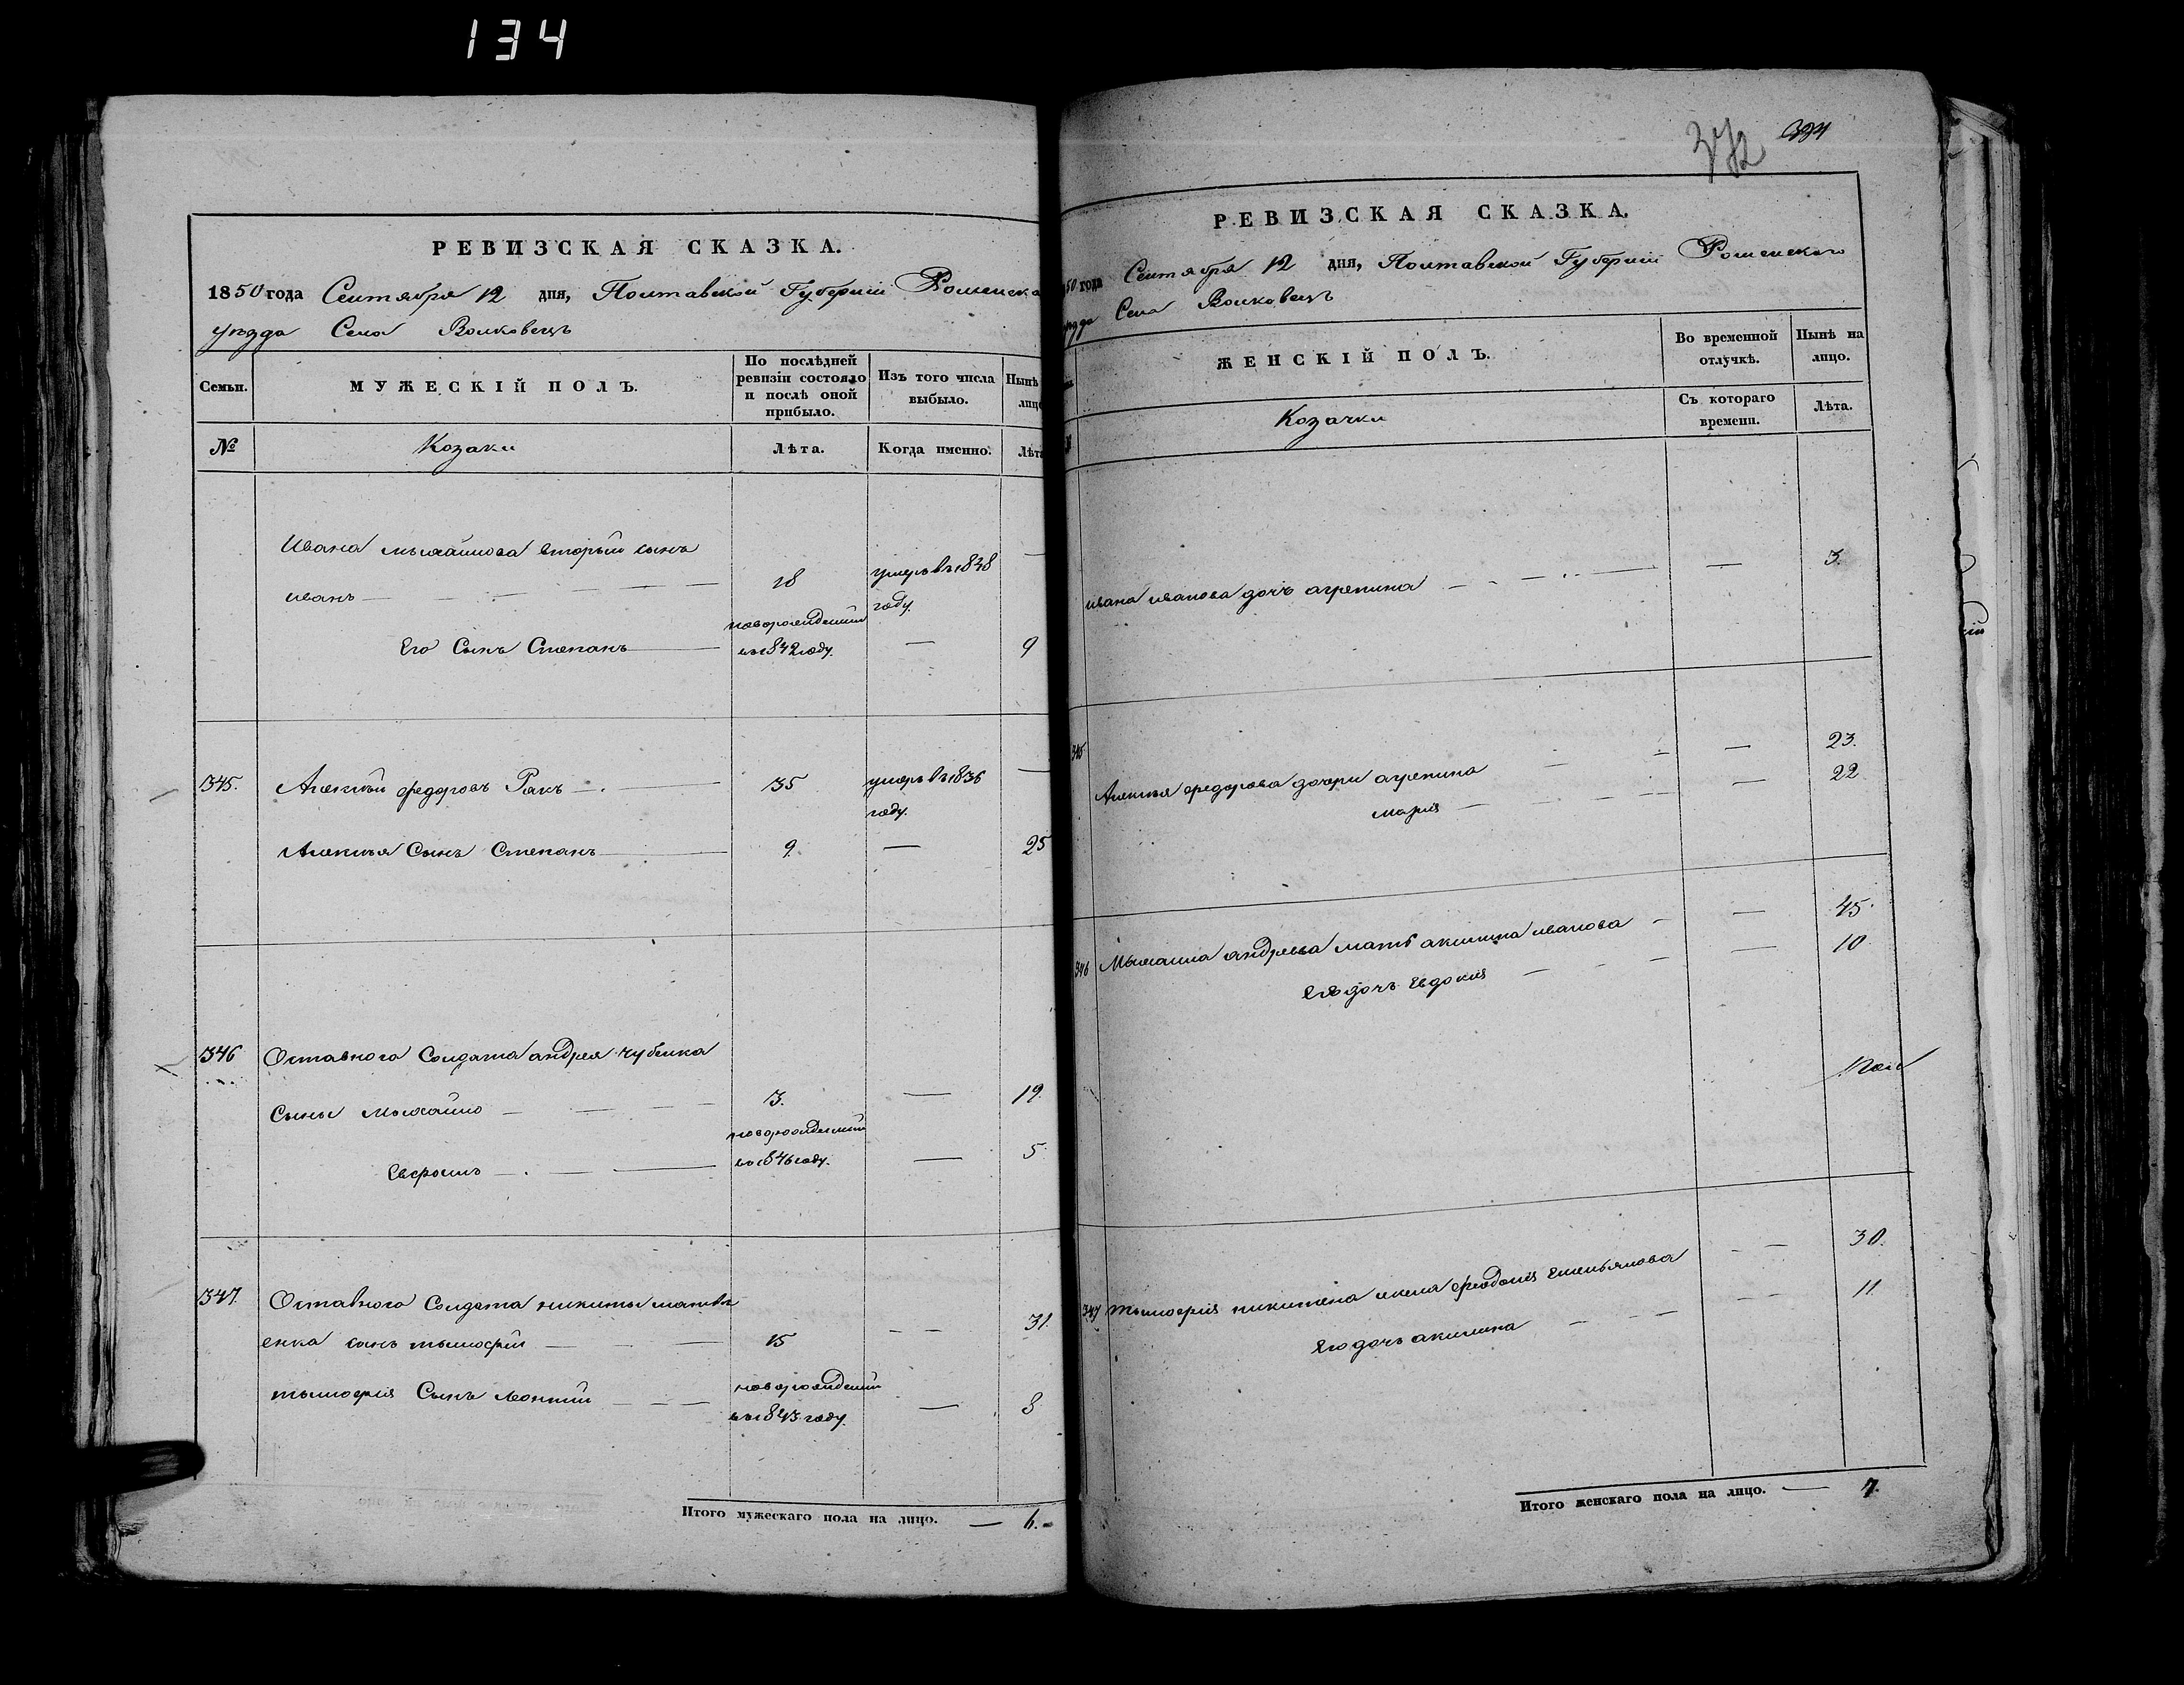 134
РЕВИЗСКАЯ СКАЗКА.
1850 года Сентября 12 дня, Полтавской Губернии Роменска
уезда Села Волковецъ
Семьи.
МУЖЕСКІЙ ПОЛЪ.
По послѣдней ревизіи состояло и послѣ оной прибыло.
Изъ того числа выбыло.
Нынѣ
лицо
№
Козаки
Лѣта.
Когда именно.
Лѣта
Ивана михайлова вторый сынъ
иванъ 18 умеръ въ 1838 году
Его Сынъ Степанъ новорожденный въ 1842 году. 9
345. Алексѣй федоровъ Ракъ 35 умеръ въ 1836 году.
Алексѣя Сынъ Степанъ 9. 25
346 Отставного Солдата андрея чубенка
Сыны михайло 3. 19.
новорожденный въ 1846 году. 5
347. Отставного Солдата никиты матвѣ
енка сынъ тимофѣй 15 31.
тимофѣя Сынъ леонтий новорожденный въ 1843 году. 8
Итого мужескаго пола на лицо. — 6.
372
РЕВИЗСКАЯ СКАЗКА.
50 года Сентября 12 дня, Полтавской Губернии Роменского
Села Волковецъ
ЖЕНСКІЙ ПОЛЪ.
Во временной отлучкѣ.
Нынѣ на лицо.
Козачки
Съ котораго времени.
Лѣта.
ивана иванова дочь агрепина 3.
345
Алексѣя федорова дочери агрепина 23.
мария 22
346 Михайла андрѣева мать акилина иванова 45.
дочь Евдокия 10
347 тимофѣя никитена жена феодосия Емельянова 30.
его дочь акилина 11.
Итого женскаго пола на лицо. — 7.